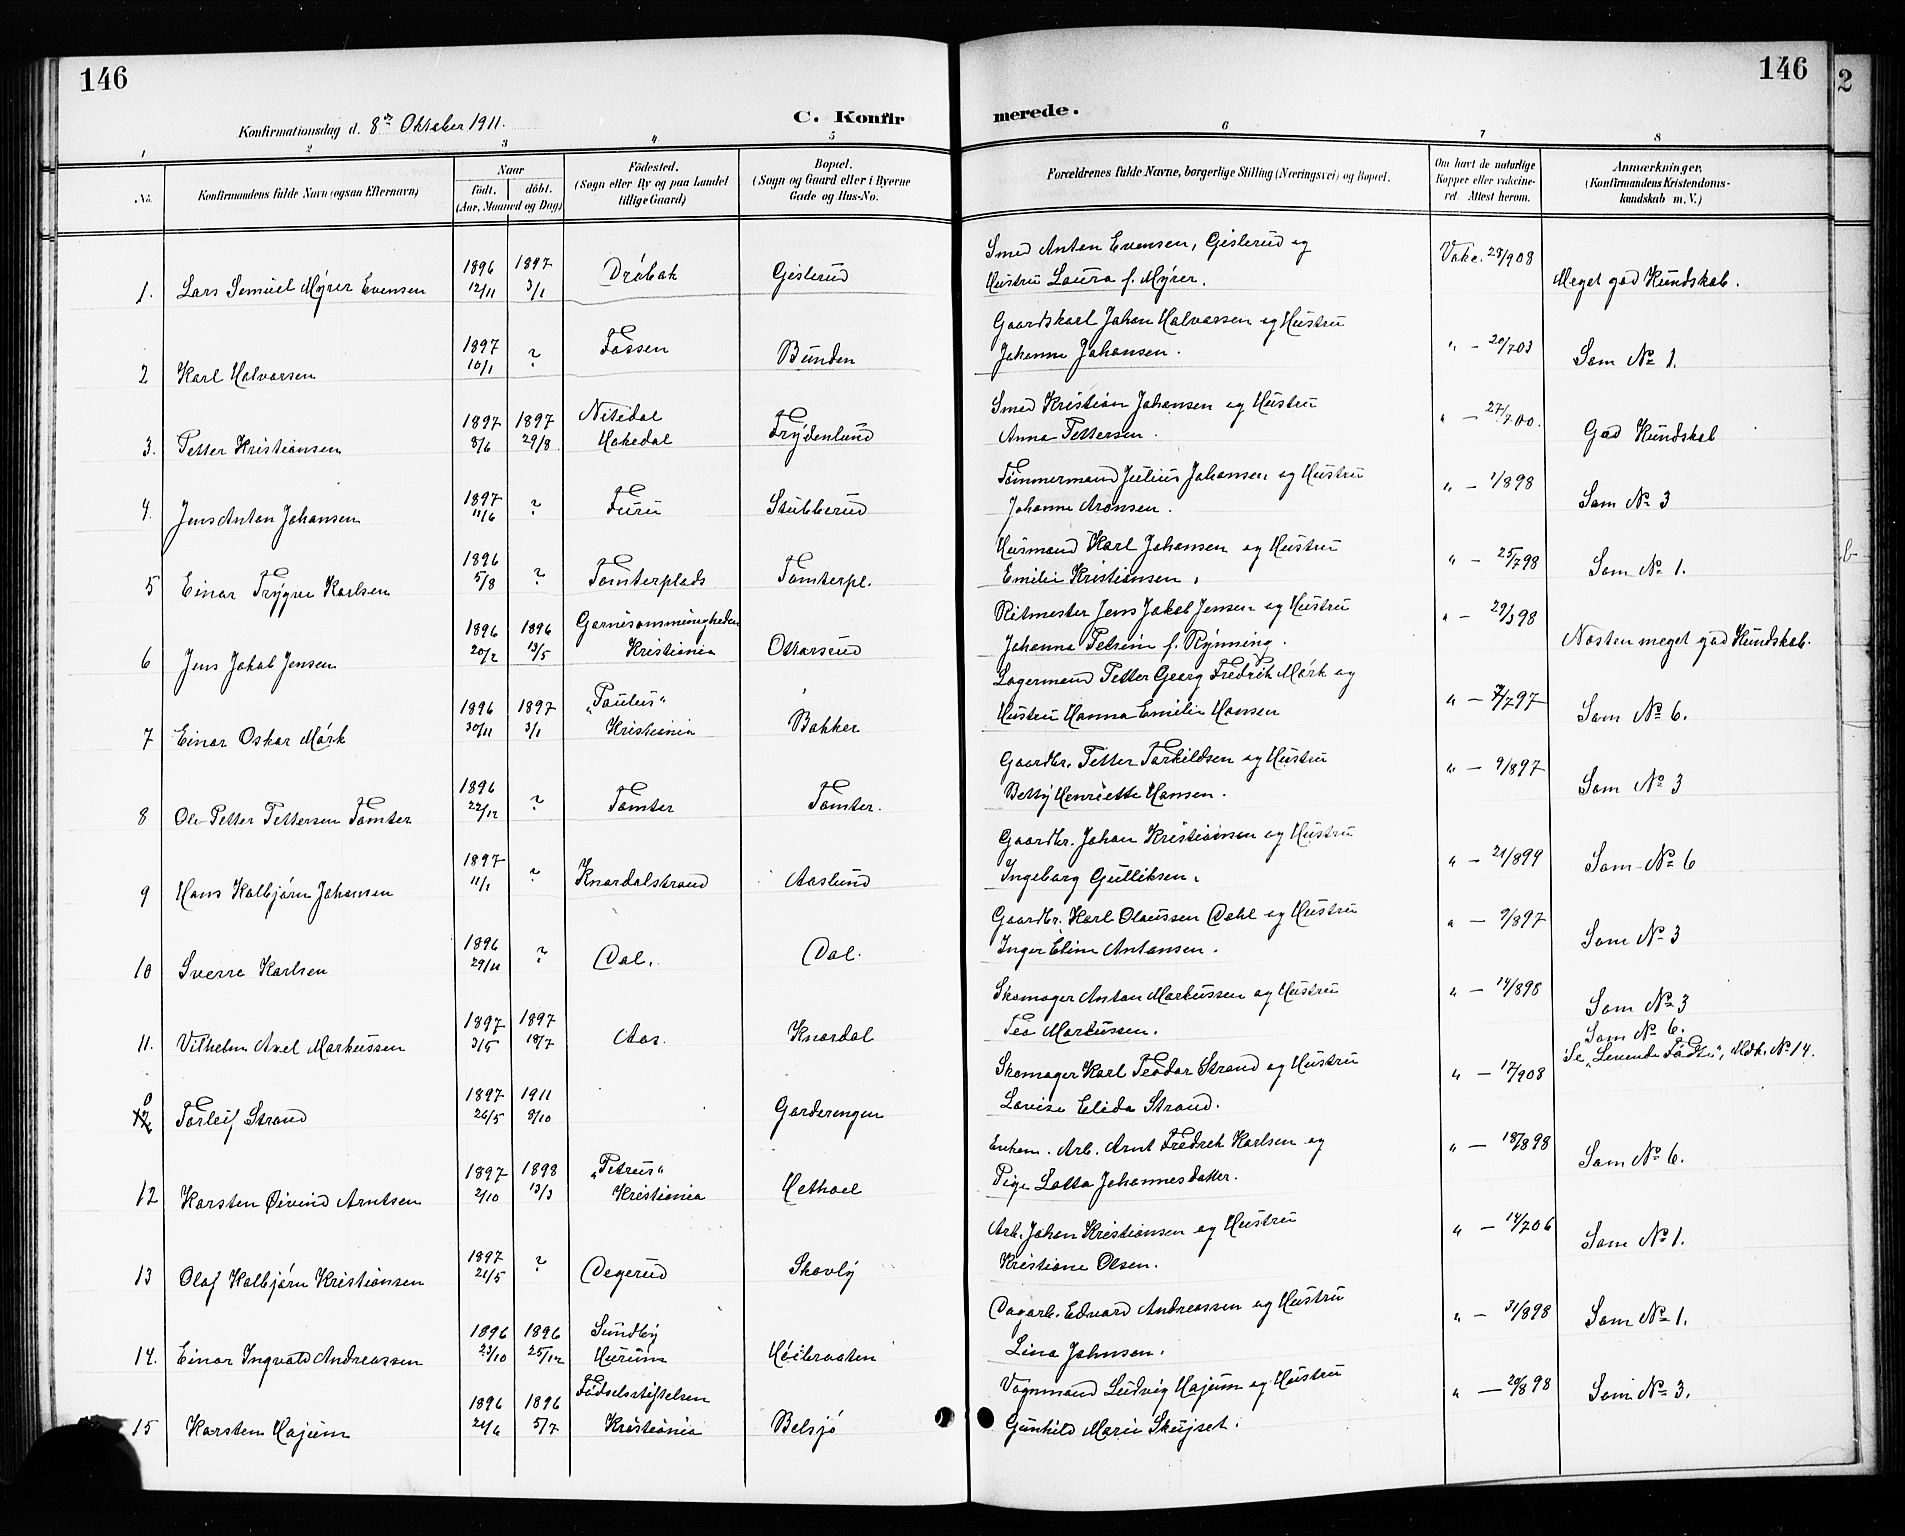 146
146
2
Konfirmationsdag d. 8de Oktober 1911.
C. Konfir
merede.
1 2 3 4 5 6 7 8
No.
Konfirmandens fulde Navn (ogsaa Efternavn)
Naar
født. døbt.
(Aar, Maaned og Dag)
Fødested.
(Sogn eller By og paa Landet
tillige Gaard)
Bopæl.
(Sogn og Gaard eller i Byerne
Gade og Hus-No.
Forældrenes fulde Navne, borgerlige Stilling (Næringsvei) og Bopæl.
Om havt de naturlige
Kopper eller vakcine-
ret Attest herom.
Anmærkninger.
(Konfirmandens Kristendoms-
kundskab m. V.)
1. Lars Samuel Myrer Evensen 1896 12/11 1897 3/1 Drøbak Gislerud
Smed Anton Evensen, Gislerud og
Hustru Laura f. Myrer.
Vakc. 28/9 08 Meget god Kundskab.
2 Karl Halvorsen 1897 10/1 ? Fossen Bunden
Gaardskarl Johan Halvorsen og Hustru
Johanne Johansen.
" - 20/7 03 Som No 1.
3. Petter Kristiansen 1897 8/6 1897 29/8 Nitedal Hakedal Frydenlund
Smed Kristian Johansen og Hustru
Anna Pettersen.
" - 27/7 00. God Kundskab
4. Jens Anton Johansen 1897 11/6 ? Furu Stubberud
Tømmermand Julius Johansen og Hustru
Johanne Aronsen.
" - 1/8 98 Som No 3
5 Einar Trygve Karlsen 1896 5/8 ? Tomterplads Tomterpl.
Husmand Karl Johansen og Hustru
Emilie Kristiansen.
" - 25/7 98 Som No 1.
6 Jens Jakob Jensen 1896 20/2 1896 13/5 Garnisonsmenigheden Kristiania Ottarsrud
Ritmester Jens Jakob Jensen og Hustru
Johanna Petrine f. Rynning.
" - 29/3 98 Næsten meget god Kundskab.
7 Einar Oskar Mørk 1896 30/11 1897 3/1 "Paulus" Kristiania Bakker
Lagermand Petter Georg Fredrik Mørk og
Hustru Hanna Emilie Hansen
" - 7/7 97 Som No 6.
8 Ole Petter Pettersen Tomter 1896 22/12 ? Tomter Tomter.
Gaardbr. Petter Torkildsen og Hustru
Betty Henriette Hansen.
" - 9/8 97 Som No 3
9 Hans Kolbjørn Johansen 1897 11/1 ? Knardalstrand Aaslund
Gaardbr. Johan Kristiansen og Hustru
Ingeborg Gulliksen.
" - 21/8 99 Som No 6
10 Sverre Karlsen 1896 29/11 ? Dal. Dal.
Gaardbr. Karl Olaussen Dahl og Hustru
Inger Eline Antonsen.
" - 9/8 97 Som No 3
11. Vilhelm Axel Markussen 1897 3/5 1897 18/7 Aas. Knardal
Skomager Anton Markussen og Hustru
Tea Markussen.
" - 14/8 98 Som No 3
Torleif Strand 1897 26/5 1911 8/10 Garderengen
Skomager Karl Teodor Strand og Hustru
Lovise Elida Strand.
" - 17/9 08 Som No 6.
Se "Levende Fødte", Mdk. No 14.
12 Karsten Øivind Arntsen 1897 2/10 1898 13/3 "Petrus" Kristiania Hethael
Enkem. Arb. Arnt Fredrek Karlsen og
Pige Lotta Johannesdatter.
" - 18/8 98 Som No 6.
13 Olaf Kolbjørn Kristiansen 1897 21/5 ? Degerud Skovly
Arb. Johan Kristiansen og Hustru
Kristiane Olsen.
" - 14/7 06 Som No 1.
14. Einar Ingvald Andreassen 1896 23/10 1896 25/12 Sundby Hurum Høibraaten
Dagarb. Edvard Andreassen og Hustru
Lina Johnsen.
" - 31/8 98 Som No 1.
15 Karsten Hajum 1896 21/6 1896 5/7 Fødselsstiftelsen Kristiania Belsjø
Vognmand Ludvig Hajum og Hustru
Gunhild Marie Skujset.
" - 20/8 98 Som No 3.